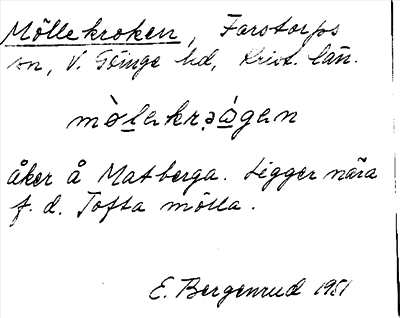 Möllekroken, Farstorps
sn, V. Göinge hd, Krist. län.
mò̤lekrǝá̤gen
åker å Matberga. Ligger nära
f. d. Tofta mölla.
E. Bergenrud 1951